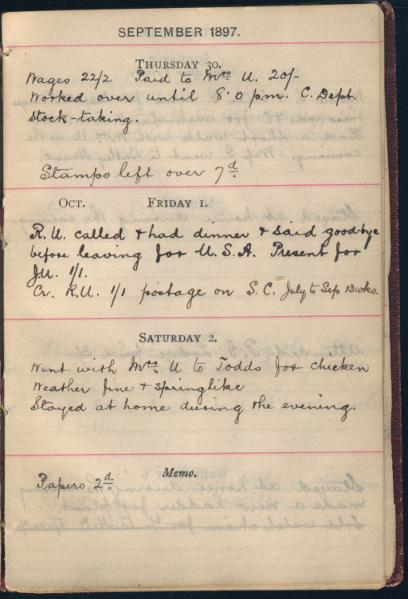 SEPTEMBER 1897.
THURSDAY 30.
Wages 22/2 Paid to Mrs U. 20/-
Worked over until 8.0 p.m. C. Dept.
Stock-taking.
Stamps left over 7d.
OCT. FRIDAY 1.
R.U. called & had dinner & said goodbye
before leaving for U.S.A. Present for
J.U. 1/1.
Cr. R.U. 1/1 postage on S.C. July to Sep 13 wks.
SATURDAY 2.
Went with Mrs U to Todds for chicken
Weather fine & springlike
Stayed at home during the evening.
Memo.
Papers 2d